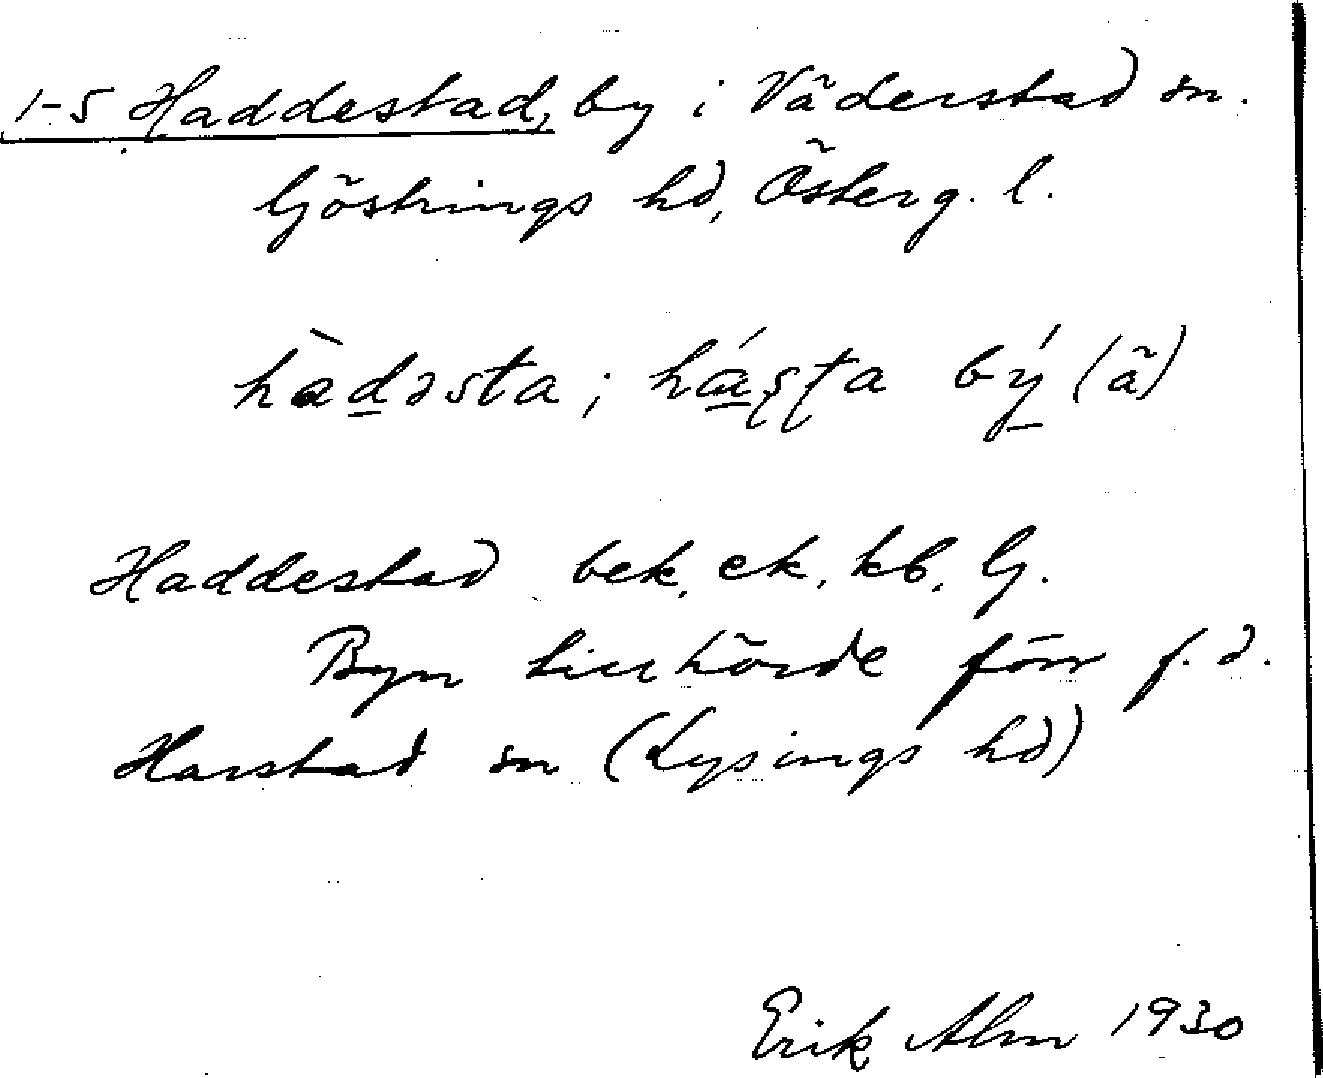 1-5 Haddestad, by i Väderstad sn.
Göstrings hd, Österg. l.
hàdəsta; háʂʈa bý (ä)
Haddestad bek, ek, kb, G.
Byn tillhörde förr f. d.
Harstad sn (Lysings hd)
Erik Alm 1930